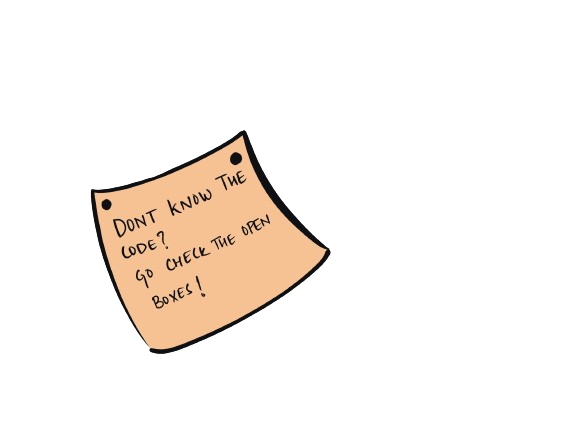 DONT KNOW THE
CODE?
GO CHECK THE OPEN
BOXES!